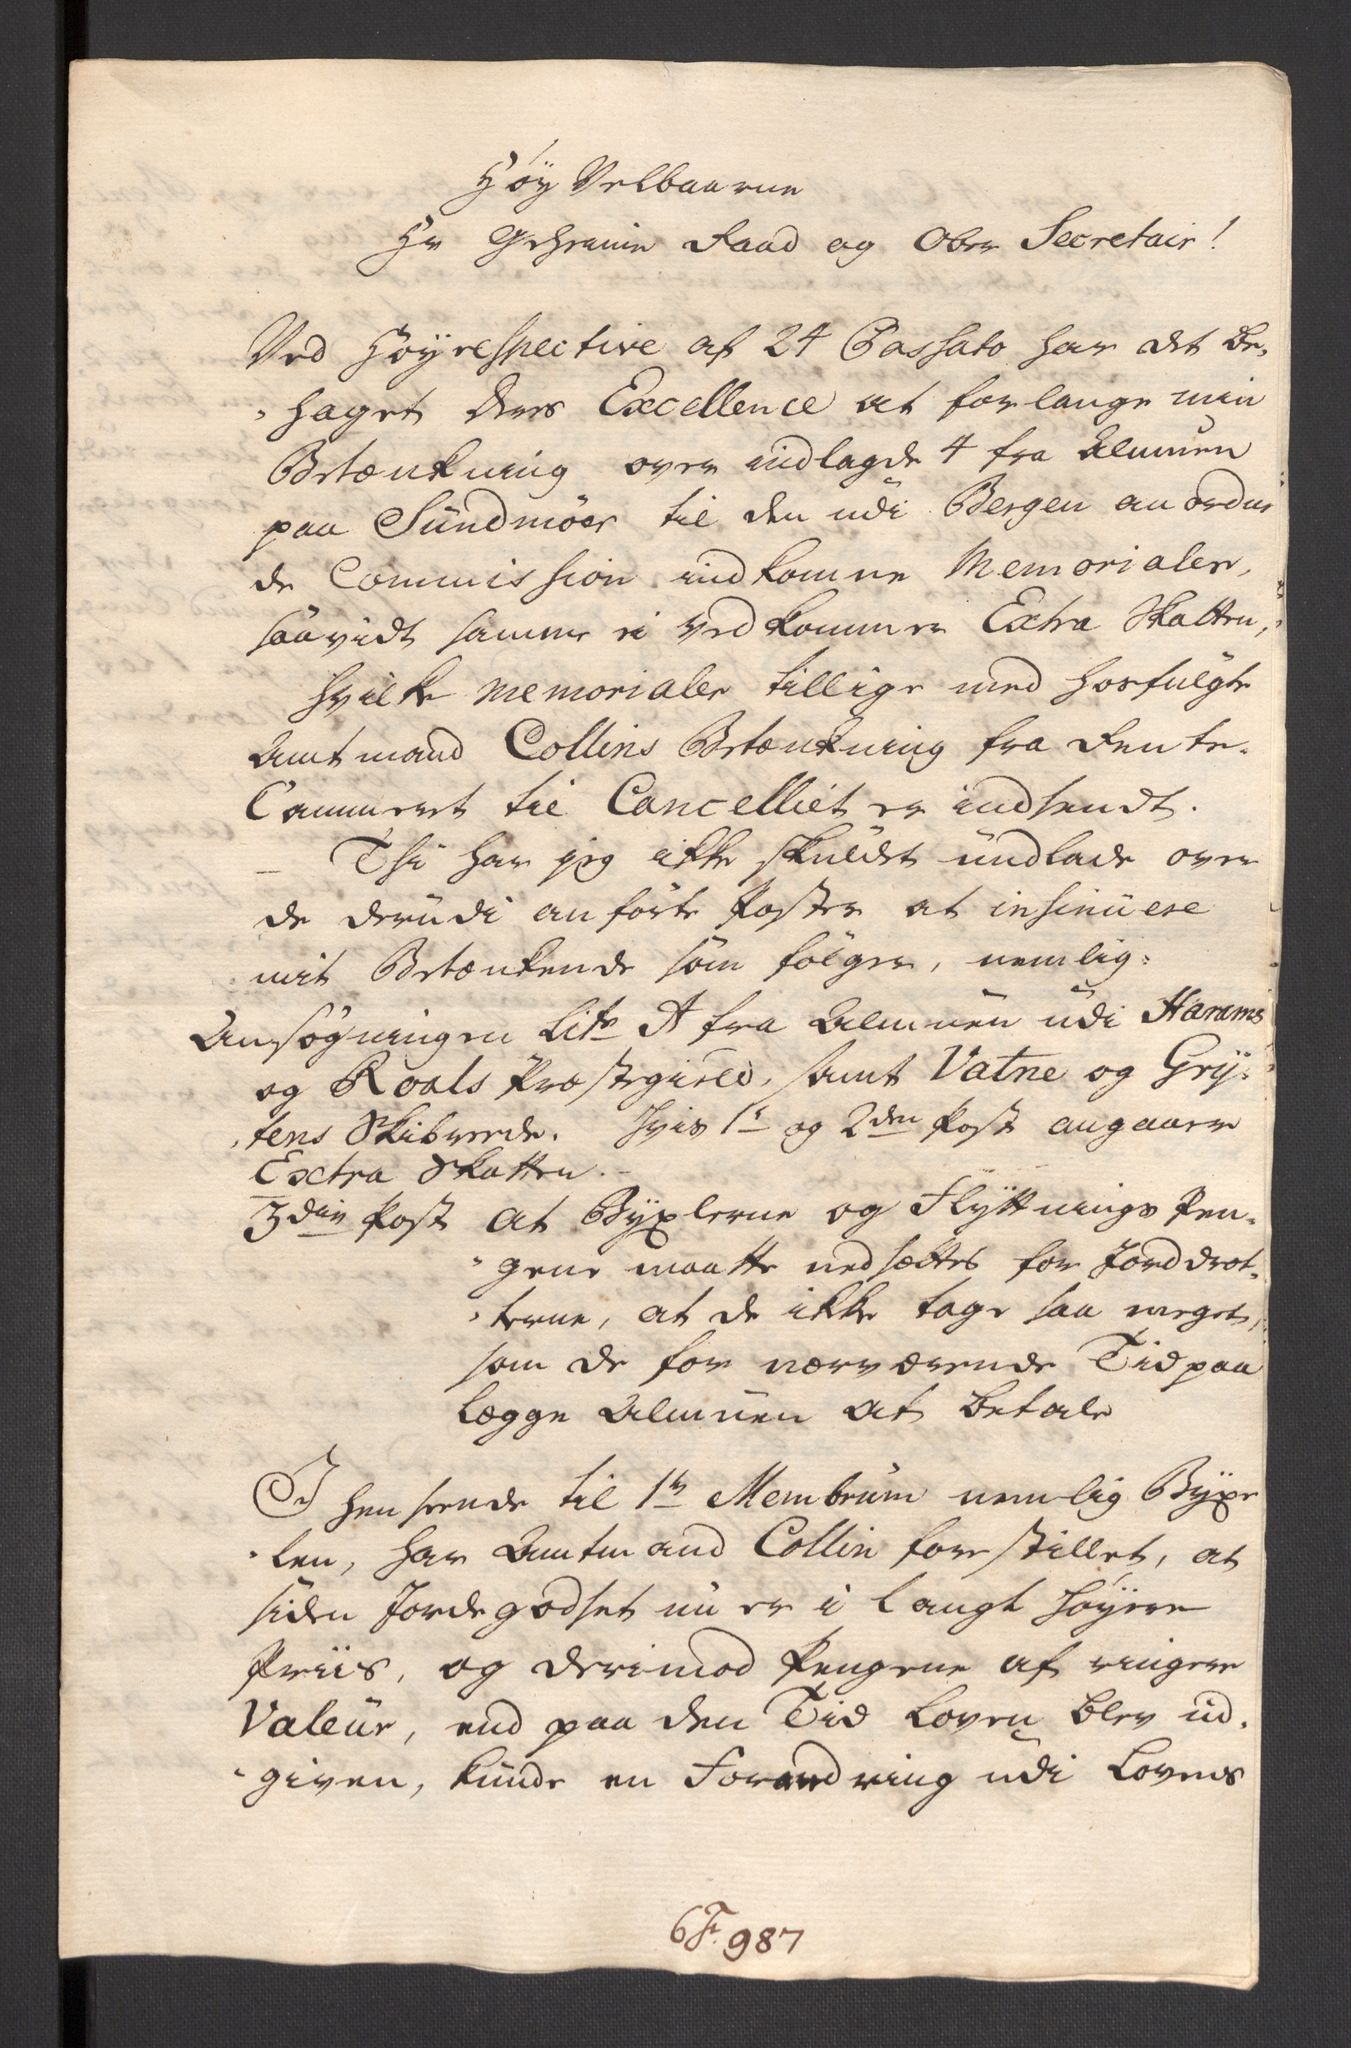 Høy Velbaarne
Hr Geheime Raad og Ober Secretair!
Ved Høyrespective af 24 Passato har det be-
-haget Deres Excellence at forlange min
Betænkning over indlagde 4 fra Almuen
paa Sundmöer til den udi Bergen anordne
de Commission indkomne Memorialer,
saavidt samme ei vedkommer Extra Skatten,
hvilke Memorialer tillige med hosfulgte
Amtmand Collins Betænkning fra Rente-
Cammeret til Cancelliet er indsendt.
Thi har jeg ikke skuldet undlade over
de derudi anførte Poster at insinuere
mit Betænkende som følger, nemlig:
Ansøgningen Litr A fra Almuen udi Harams
og Roals Præstegield, samt Vatne og Gry-
-tens Skibreede. Hvis 1ste og 2den Post angaaer
Extra Skatten.
3die Post at Byxlerne og Flyttnings Pen-
-gene maatte nedsættes for Jorddrot-
-terne, at de ikke tage saa meget,
som de for nærværende Tid paa
lægge Almuen at betale
I henseende til 1te Membrum nemlig Byxe
-len, har Amtmand Collin forestillet, at
siden Jordegodset nu er i langt høyere
Priis, og derimod Pengene af ringere
Valeur, end paa den Tid Loven blev ud-
-given, kunde en Forandring udi Lovens
987